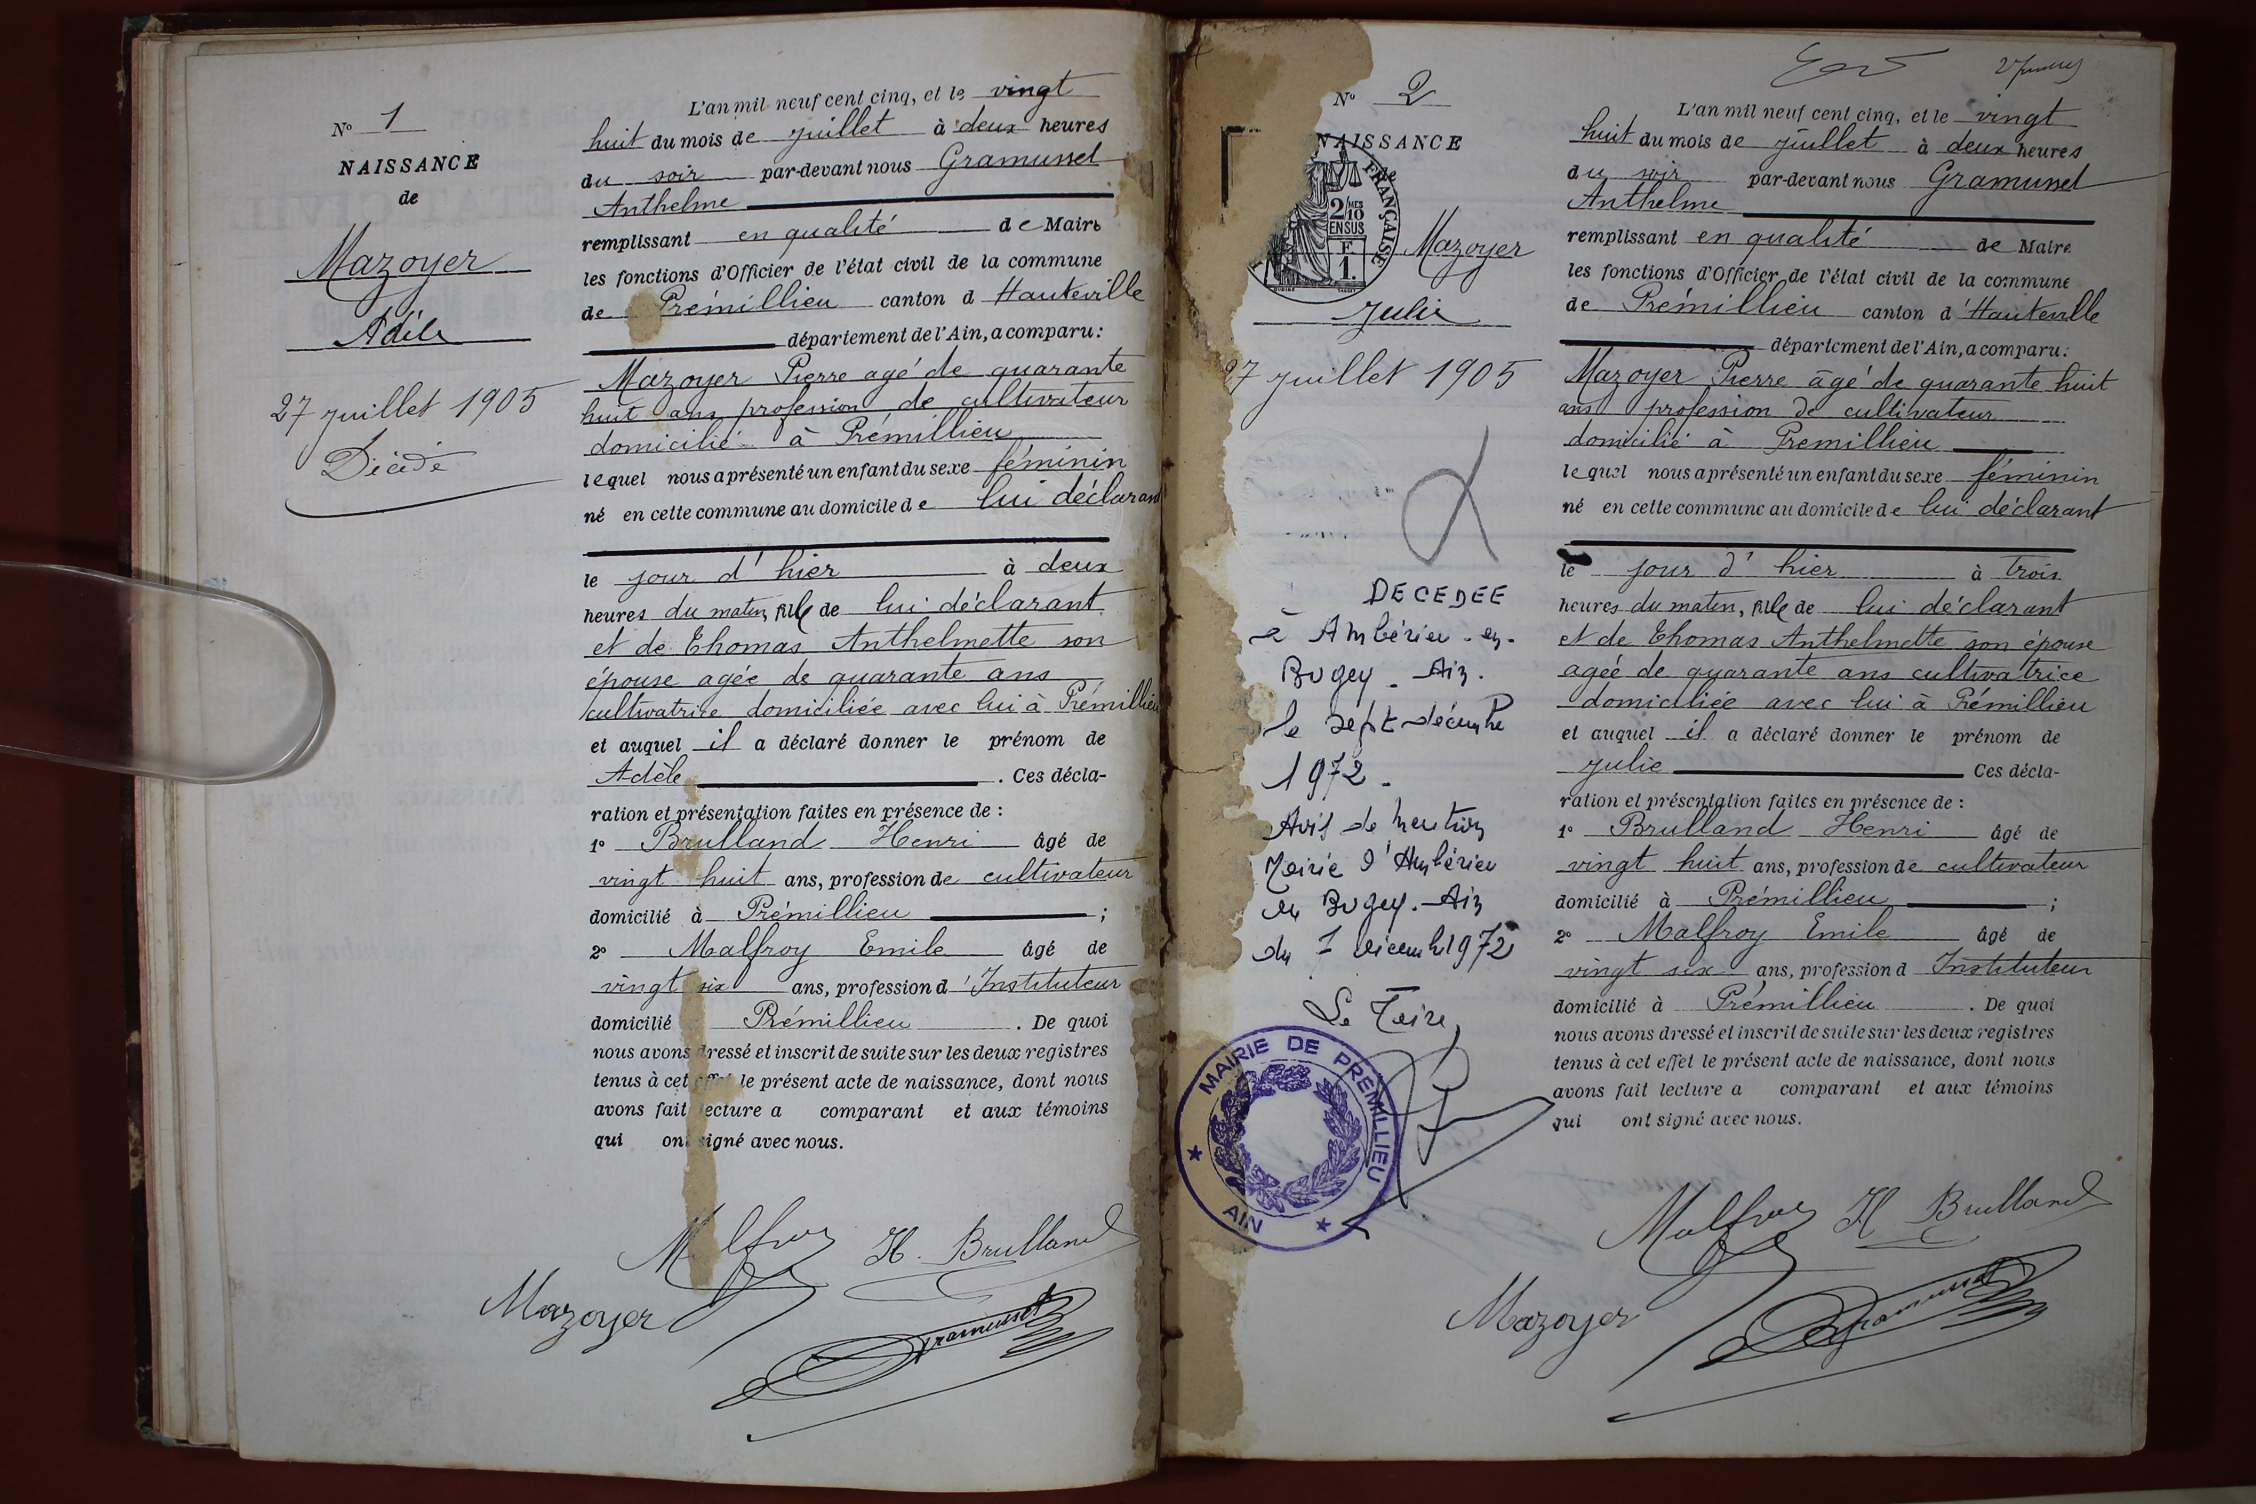 N° 1
NAISSANCE
de
Mazoyer
Adèle
27 juillet 1905
Décédé
L'an mil neuf cent cinq, et le vingt
huit du mois de juillet à deux heures
du soir par-devant nous Gramusset
Anthelme
remplissant en qualité de Maire
les fonctions d'Officier de l'état civil de la commune
de Prémillieu canton d Hauteville
département de l'Ain, a comparu :
Mazoyer Pierre agé de quarante
huit ans profession de cultivateur
domicilié à Prémillieu
lequel nous a présenté un enfant du sexe féminin
né en cette commune au domicile de lui déclarant
le jour d'hier à deux
heures du matin, fille de lui déclarant
et de Thomas Anthelmette son
épouse agée de quarante ans
cultivatrice domiciliée avec lui à Prémillieu
et auquel il a déclaré donner le prénom de
Adèle . Ces décla-
ration et présentation faites en présence de :
1° Brulland Henri âgé de
vingt huit ans, profession de cultivateur
domicilié à Prémillieu ;
2° Malfroy Emile âgé de
vingt six ans, profession d'Instituteur
domicilié Prémillieu . De quoi
nous avons dressé et inscrit de suite sur les deux registres
tenus à cet effet le présent acte de naissance, dont nous
avons fait lecture a comparant et aux témoins
qui ont signé avec nous.
Malfroy H. Brulland
Mazoyer
Gramusset
N° 2
NAISSANCE
de
FRANÇAISE
2/10
MES
EN SUS
F.
1.
Mazoyer
Julie
27 juillet 1905
DECEDEE
à Ambérieu-en-
Bugey - Ain.
le sept décembre
1972.
Avis de mention
Mairie d'Ambérieu
en Bugey - Ain
du 7 décembre 1972
Le Maire,
MAIRIE DE PREMILLIEU
AIN
L'an mil neuf cent cinq, et le vingt
huit du mois de juillet à deux heures
du soir par-devant nous Gramusset
Anthelme
remplissant en qualité de Maire
les fonctions d'Officier de l'état civil de la commune
de Prémillieu canton d'Hauteville
département de l'Ain, a comparu :
Mazoyer Pierre âgé de quarante huit
ans profession de cultivateur
domicilié à Premillieu
lequel nous a présenté un enfant du sexe féminin
né en cette commune au domicile de lui déclarant
le jour d'hier à trois
heures du matin, fille de lui déclarant
et de Thomas Anthelmette son épouse
agée de quarante ans cultivatrice
domiciliée avec lui à Prémillieu
et auquel il a déclaré donner le prénom de
Julie Ces décla-
ration et présentation faites en présence de :
1° Brulland Henri âgé de
vingt huit ans, profession de cultivateur
domicilié à Prémillieu ;
2° Malfroy Emile âgé de
vingt six ans, profession d Instituteur
domicilié à Prémillieu . De quoi
nous avons dressé et inscrit de suite sur les deux registres
tenus à cet effet le présent acte de naissance, dont nous
avons fait lecture a comparant et aux témoins
qui ont signé avec nous.
Malfroy H Brulland
Mazoyer
Gramusset